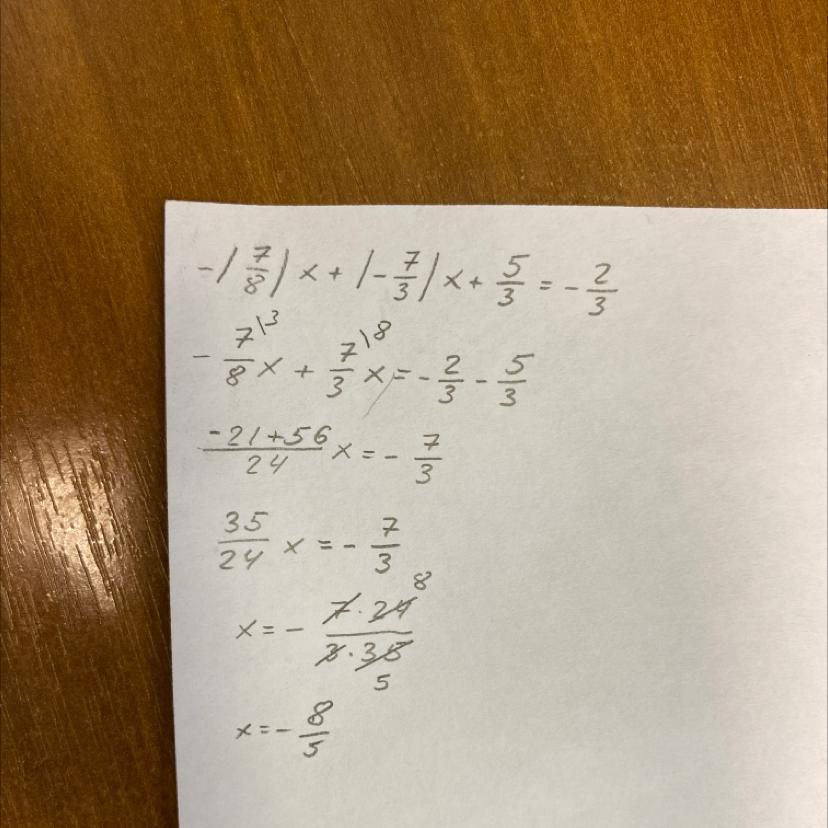 -|7/8|x+|-7/3|x+5/3=-2/3
-7\3/8x+7\8/3x=-2/3-5/3
-21+56/24x=-7/3
35/24x=-7/3
x=-7·24 8/3·35 5
x=-8/5